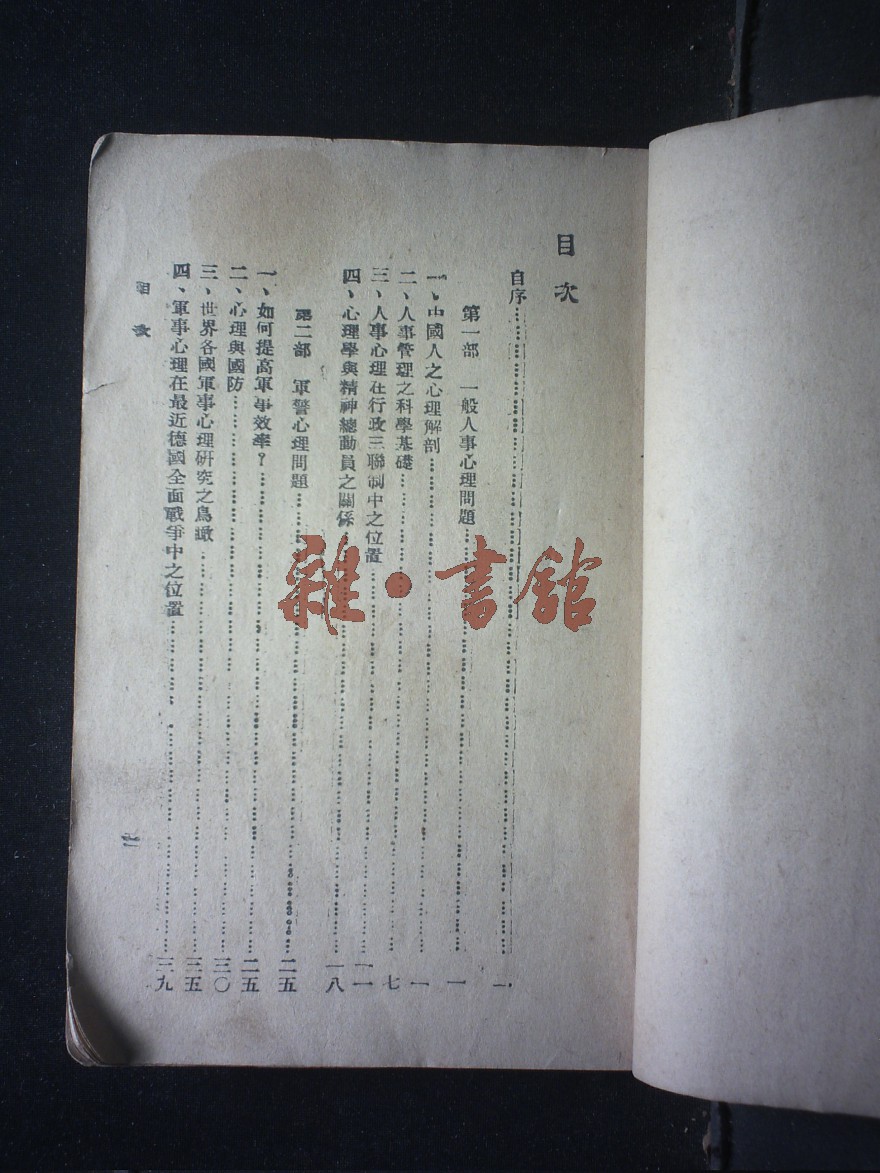 目次
自序……一
第一部 一般人事心理問題……一
一、中國人之心理解剖……一
二、人事管理之科學基礎……七
三、人事心理在行政三聯制中之位置……一一
四、心理學與精神總動員之關係……一八
第二部 軍警心理問題……二五
一、如何提高軍事效率？……二五
二、心理與國防……三〇
三、世界各國軍事心理研究之鳥瞰……三五
四、軍事心理在最近德國全面戰爭中之位置……三九
目次
雜·書館